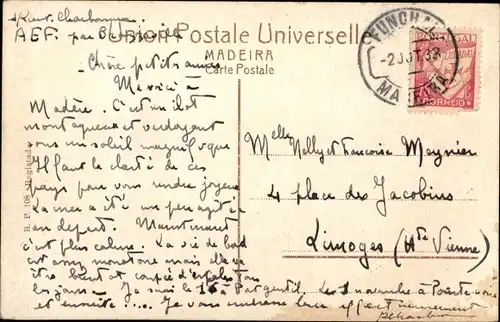 Charbonnier
AEF. par
Union Postale Universelle
MADEIRA
Carte Postale
FUNCHAL
-2 OUT. 33
MADEIRA
CORREIO
Chère petite amie
Me voici à
Madère. C'est un îlot
montagneux et verdoyant
sous un soleil magnifique
Il faut la clarté de ces
pays pour vous rendre joyeux
La mer a été un peu agitée
au départ. Maintenant
c'est plus calme. La vie de bord
est assez monotone mais elle va
être bientôt coupée d'escales tous
les jours. Je serai le 16 à Port gentil, le 1 novembre à Pointe noire
et ensuite ... Je vous embrasse bien affectueusement
Charbonnier
Melle Nelly et Françoise Meynier
4 place des Jacobins
Limoges (Hte Vienne)
B. P. 108 - Registado